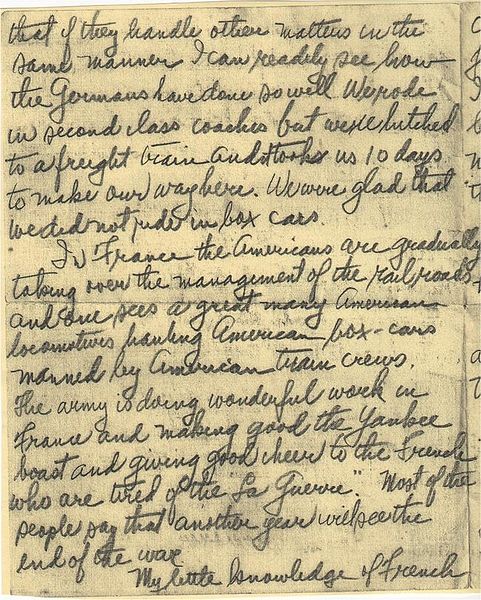 that if they handle other matters in the
same manner I can readily see how
the Germans have done so well. We rode
in second class coaches but were hitched
to a freight train and it took us 10 days
to make our way here. We were glad that
we did not ride in box cars.
In France the Americans are gradually
taking over the management of the railroads
and one sees a great many American
locomotives hauling American box-cars
manned by American train crews.
The army is doing wonderful work in
France and making good the Yankee
boast and giving good cheer to the French
who are tired of the "La Guerre". Most of the
people say that another year will see the
end of the war
My little knowledge of French